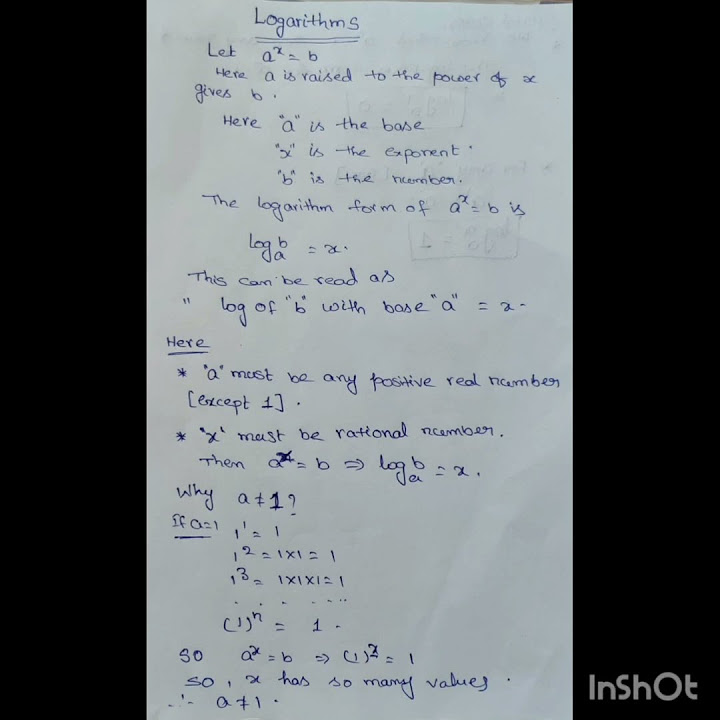 Logarithms
Let aˣ = b
Here a is raised to the power of x
gives b.
Here "a" is the base
"x" is the exponent.
"b" is the number.
The logarithm form of aˣ = b is
log_a b = x.
This can be read as
" log of "b" with base "a" = x.
Here
* "a" must be any positive real number
[except 1].
* "x" must be rational number.
Then aˣ = b ⇒ log_a b = x.
Why a ≠ 1?
If a=1 1¹ = 1
1² = 1×1 = 1
1³ = 1×1×1 = 1
. . . . . . . .
(1)ⁿ = 1.
so aˣ = b ⇒ (1)ˣ = 1
so, x has so many values.
∴ a ≠ 1.
InShOt